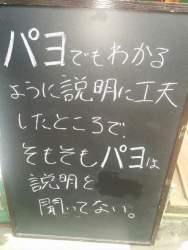 パヨでもわかる
ように説明に工夫
したところで、
そもそもパヨは
説明を
聞いてない。